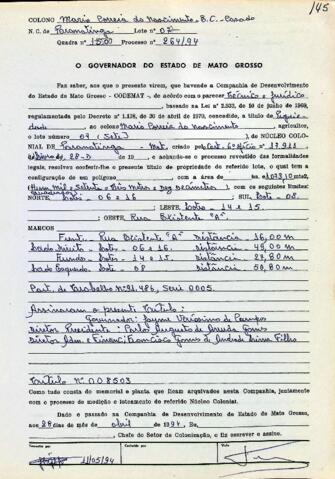 145
COLONO Mario Correia do Nascimento - B.C. - Casado
N. C. de Paranatinga Lote nº 07
Quadra nº 1500 Processo nº 264/94
O GOVERNADOR DO ESTADO DE MATO GROSSO
Faz saber, aos que a presente virem, que havendo a Companhia de Desenvolvimento
do Estado de Mato Grosso - CODEMAT -, de acordo com o parecer Técnico e Jurídico
, basado na Lei nº 2.933, de 10 de junho de 1969,
regulamentada pelo Decreto nº 1.138, de 30 de abril de 1970, concedido, a título de
ao colono Mario Correia do Nascimento, agricultor,
o lote número 07 (Sete), do NÚCLEO COLO-
NIAL DE Paranatinga - Mat. criado pelo nº 17.911
de 19 , e achando-se o processo revestido das formalidades
legais, resolveu conferir-lhe o presente título de propriedade do referido lote, o qual tem a
configuração de um polígono com a área de
(Hum Mil e Setenta e Três Metros e Dez Decímetros), com os seguintes limites:
NORTE, Lotes 06 e 16 SUL, Lote 08
LESTE, Lotes 14 e 15.
OESTE, Rua Existente "A".
MARCOS
Frente Rua Existente "A" Distância 16,00 m
Lado Direito Lotes 06 e 16 Distância 49,00 m
Fundo Lotes 14 e 15 Distância 27,80 m
Lado Esquerdo Lote 08 Distância 50,80 m
Part. de Trabalho nº 21.486, Seri 0005.
Assinaram o presente Título:
Governador: Jayme Veríssimo de Campos
Diretor Presidente: Carlos Augusto de Arruda Gomes
Diretor Adm. e Financ: Francisco Gomes de Andrade Lima Filho
Título Nº 008503
Tudo como consta do memorial e planta que ficam arquivados nesta Companhia, juntamente
com o processo de medição e loteamento do referido Núcleo Colonial.
Dado e passado na Companhia de Desenvolvimento do Estado de Mato Grosso,
aos 28 dias do mês de abril de 1994. Eu,
, Chefe do Setor de Colonização, o fiz escrever e assino.
11/05/94
Visto